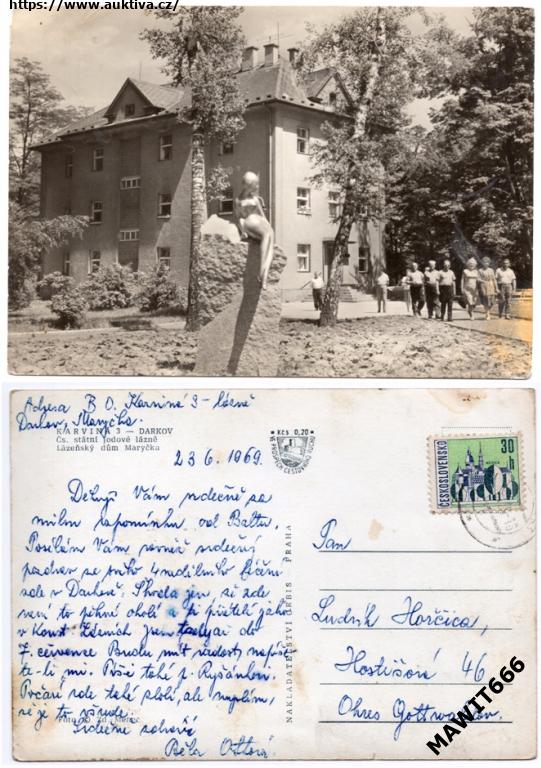 https://www.auktiva.cz/
Adresa B O. Karviná 3 - lázně
Darkov, Maryčka.
KARVINÁ 3 — DARKOV
Čs. státní jodové lázně
Lázeňský dům Maryčka
Kčs 0,20
VE PROSPĚCH CESTOVNÍHO RUCHU
23 6. 1969.
ČESKOSLOVENSKO
30 h
Děkuji Vám srdečně za
milou vzpomínku od Baltu,
Posílám Vám rovněž srdečný
pozdrav se svého 4 nedělního léčení
zde v Darkově. Škoda jen, že zde
není to pěkné okolí a ti přátelé jako
v Konst. Lázních jsem tady až do
7. července Budu mít radost, napíše-
te-li mi. Píše také p. Ryšánková.
Počasí zde také zlobí, ale myslím,
že je to všude.
Srdečně zdraví
Běla Ottová
Foto © Zd. Menec
NAKLADATELSTVÍ ORBIS PRAHA
Pan
Ludvík Horčica,
Hostišová 46
Okres Gottwaldov
MAWIT666